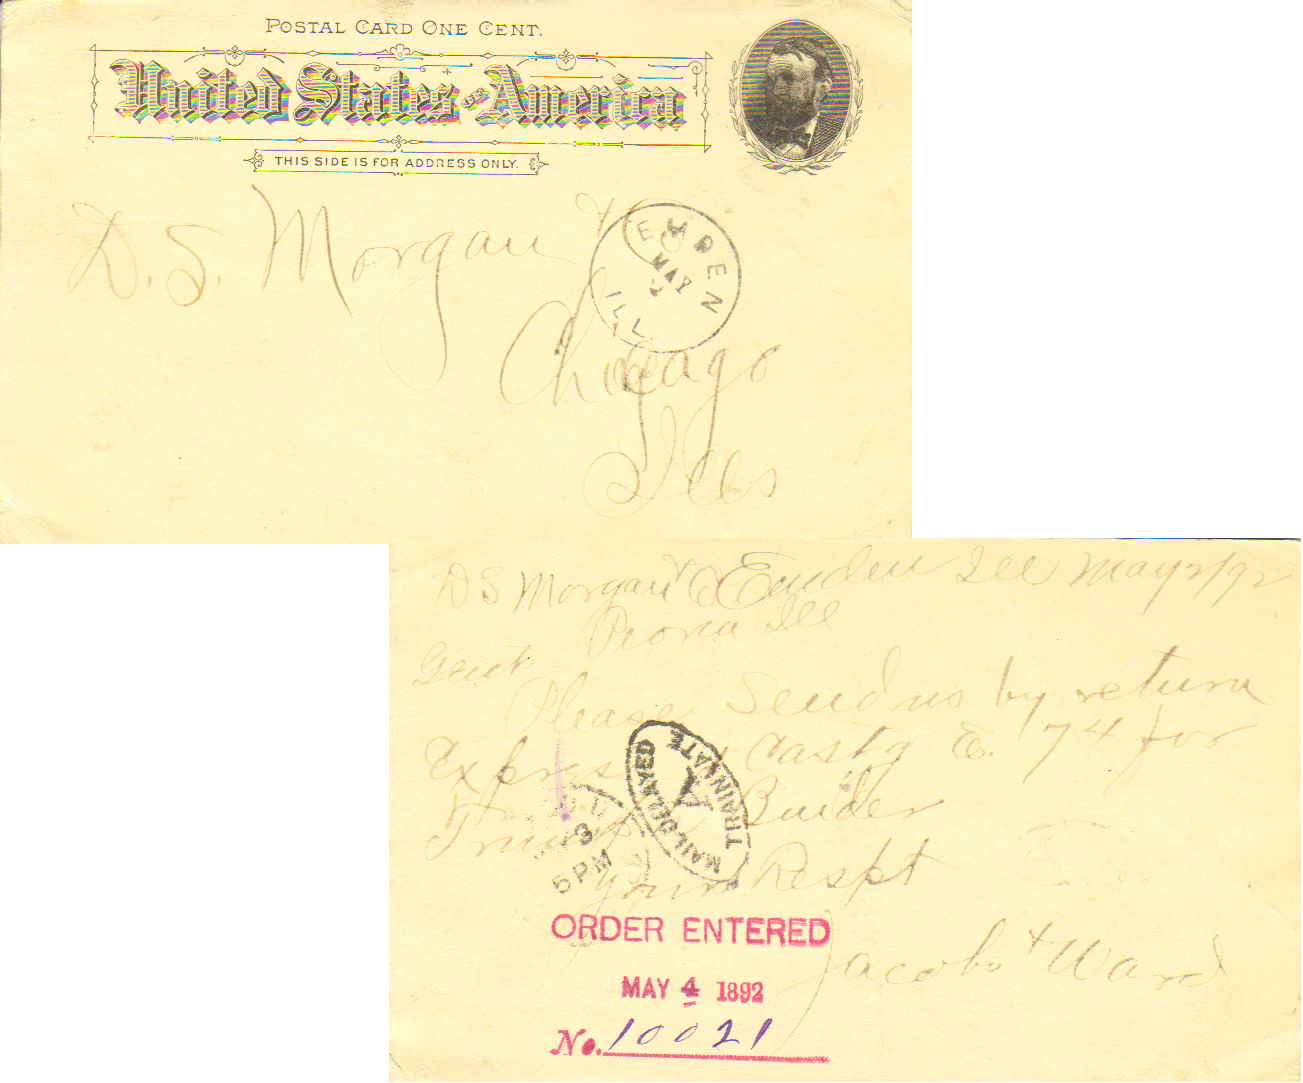 POSTAL CARD ONE CENT.
United States OF America
THIS SIDE IS FOR ADDRESS ONLY.
D. S. Morgan &
EMDEN
MAY
2
ILL.
Chicago
Ills
D S Morgan & Co Emden Ill May 2/92
Peoria Ill
Gents
Please Send us by return
Express Castg E. 74 for
Binder
Yours Respt
Jacobs & Ward
MAIL DELAYED
TRAIN LATE
3
5 PM
ORDER ENTERED
MAY 4 1892
No. 10021